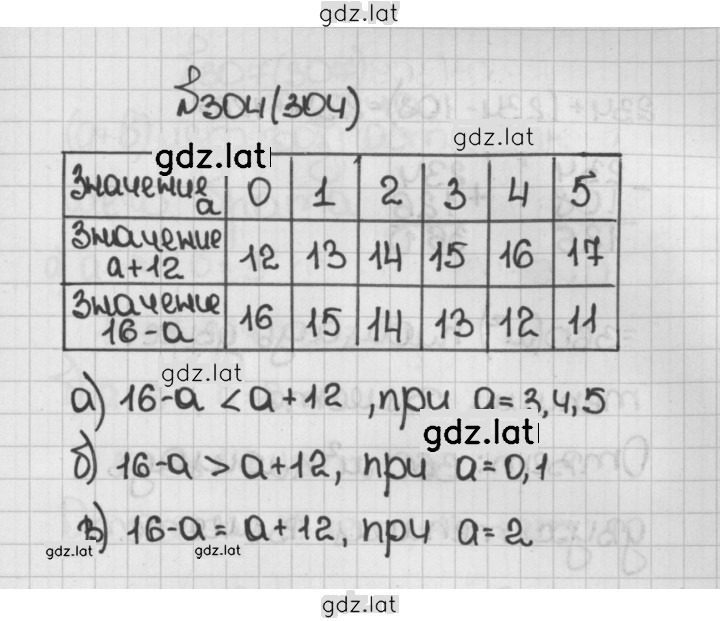 gdz.lat
№304(304)
gdz.lat
gdz.lat
Значение а 0 1 2 3 4 5
Значение а+12 12 13 14 15 16 17
Значение 16-а 16 15 14 13 12 11
gdz.lat
а) 16-а < а+12 ,при а=3,4,5
gdz.lat
б) 16-а > а+12, при а=0,1
в) 16-а = а+12, при а=2
gdz.lat gdz.lat
gdz.lat